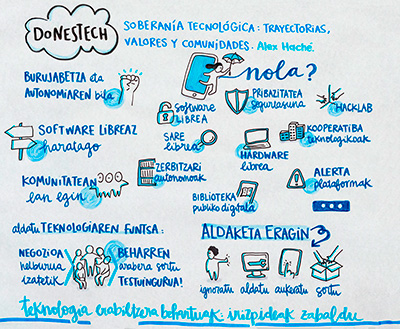 DONESTECH
SOBERANÍA TECNOLÓGICA: TRAYECTORIAS,
VALORES Y COMUNIDADES. Alex Haché.
BURUJABETZA eta
AUTONOMIAREN bila
nola?
SOFTWARE
LIBREA
PRIBAZITATEA
segurtasuna
HACKLAB
SOFTWARE LIBREAZ
haratago
SARE
librea
HARDWARE
librea
KOOPERATIBA
teknologikoak
KOMUNITATEAN
lan egin
ZERBITZARI
autonomoak
BIBLIOTEKA
publiko digitala
ALERTA
plataformak
aldatu TEKNOLOGIAREN FUNTSA:
NEGOZIOA
helburua
izatetik
BEHARREN
arabera sortu
TESTUINGURUA!
ALDAKETA ERAGIN
ignoratu aldatu aukeratu sortu
teknologia erabiltzera behartuak: irizpideak zabaldu